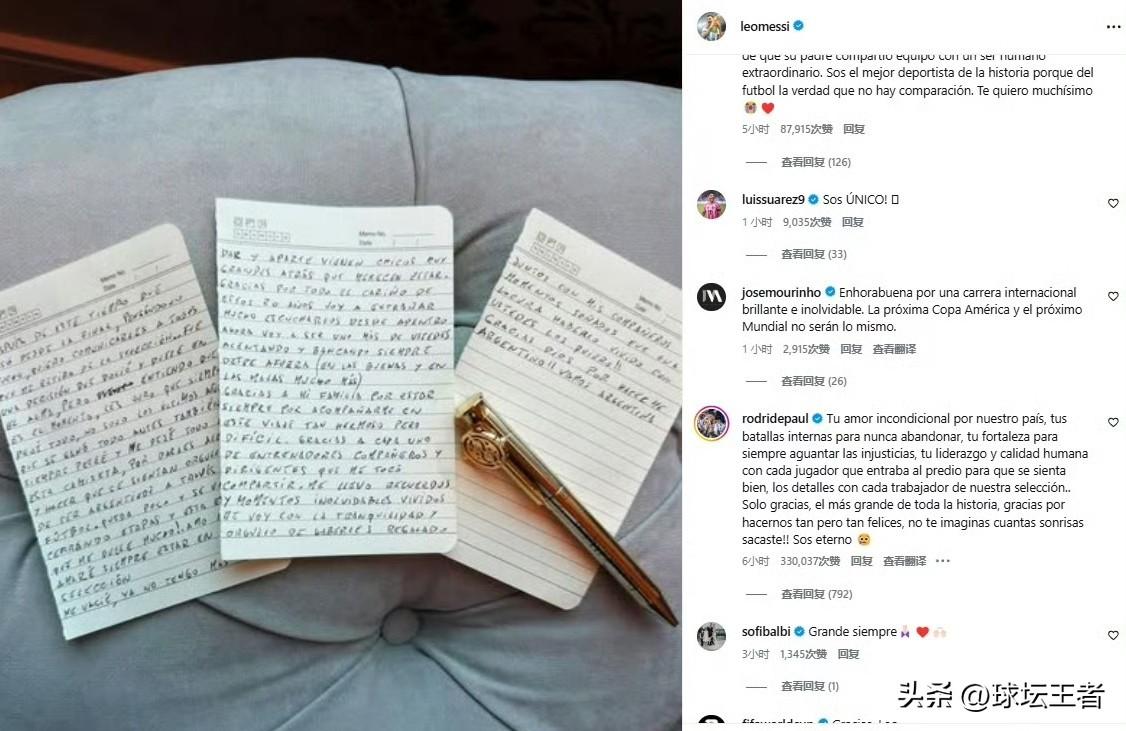 Memo No.
Date
DE ESTE TIEMPO QUE
LA FINAL Y
COMUNICARLES A TODOS
DE LA SELECCIÓN.
UNA DECISIÓN QUE
ALMA, PERO ENTIENDO QUE
ES EL MOMENTO.
DEJÉ TODO, NO SOLO LOS ÚLTIMOS
QUE SE GANÓ TODO ANTES TAMBIÉN
SIEMPRE Y ME DEJÉ TODO
ESTA CAMISETA, POR DARLES
Y HACER QUE SE SIENTAN
DE SER ARGENTINOS A TRAVÉS
FÚTBOL. QUEDA POCO Y SE
CERRANDO ETAPAS Y ESTA
QUE ME DUELE MUCHO! AMO
AMARÉ SIEMPRE ESTAR EN
SELECCIÓN
ME VACIÉ, YA NO TENGO MÁS
Memo No.
Date
DAR Y APARTE VIENEN CHICOS MUY
GRANDES ATRÁS QUE MERECEN ESTAR.
GRACIAS POR TODO EL CARIÑO DE
ESTOS 20 AÑOS VOY A EXTRAÑAR
MUCHO ESCUCHARLOS DESDE ADENTRO
AHORA VOY A SER UNO MÁS DE USTEDES
ALENTANDO Y BANCANDO SIEMPRE
DESDE AFUERA (EN LAS BUENAS Y EN
LAS MALAS MUCHO MÁS)
GRACIAS A MI FAMILIA POR ESTAR
SIEMPRE POR ACOMPAÑARME EN
ESTE VIAJE TAN HERMOSO PERO
DIFÍCIL. GRACIAS A CADA UNO
DE ENTRENADORES COMPAÑEROS Y
DIRIGENTES QUE ME TOCÓ
COMPARTIR. ME LLEVO RECUERDOS
Y MOMENTOS INOLVIDABLES VIVIDOS
ME VOY CON LA TRANQUILIDAD Y
ORGULLO DE HABERLES REGALADO
Memo No.
Date
JUNTOS CON MIS COMPAÑEROS
MOMENTOS SOÑADOS
LOCURA HABERLO VIVIDO CON
USTEDES LOS QUIERO!!
GRACIAS DIOS POR HACERME
ARGENTINO!! VAMOS ARGENTINA
leomessi
de que su padre compartió equipo con un ser humano
extraordinario. Sos el mejor deportista de la historia porque del
futbol la verdad que no hay comparación. Te quiero muchísimo
😭❤️
5小时 87,915次赞 回复
查看回复 (126)
luissuarez9 Sos ÚNICO!
1小时 9,035次赞 回复
查看回复 (33)
josemourinho Enhorabuena por una carrera internacional
brillante e inolvidable. La próxima Copa América y el próximo
Mundial no serán lo mismo.
1小时 2,915次赞 回复 查看翻译
查看回复 (26)
rodridepaul Tu amor incondicional por nuestro país, tus
batallas internas para nunca abandonar, tu fortaleza para
siempre aguantar las injusticias, tu liderazgo y calidad humana
con cada jugador que entraba al predio para que se sienta
bien, los detalles con cada trabajador de nuestra selección..
Solo gracias, el más grande de toda la historia, gracias por
hacernos tan pero tan felices, no te imaginas cuantas sonrisas
sacaste!! Sos eterno 🥹
6小时 330,037次赞 回复 查看翻译
查看回复 (792)
sofibalbi Grande siempre ❤️
3小时 1,345次赞 回复
查看回复 (1)
头条 @球坛王者
fifaworldcup Gracias, Leo